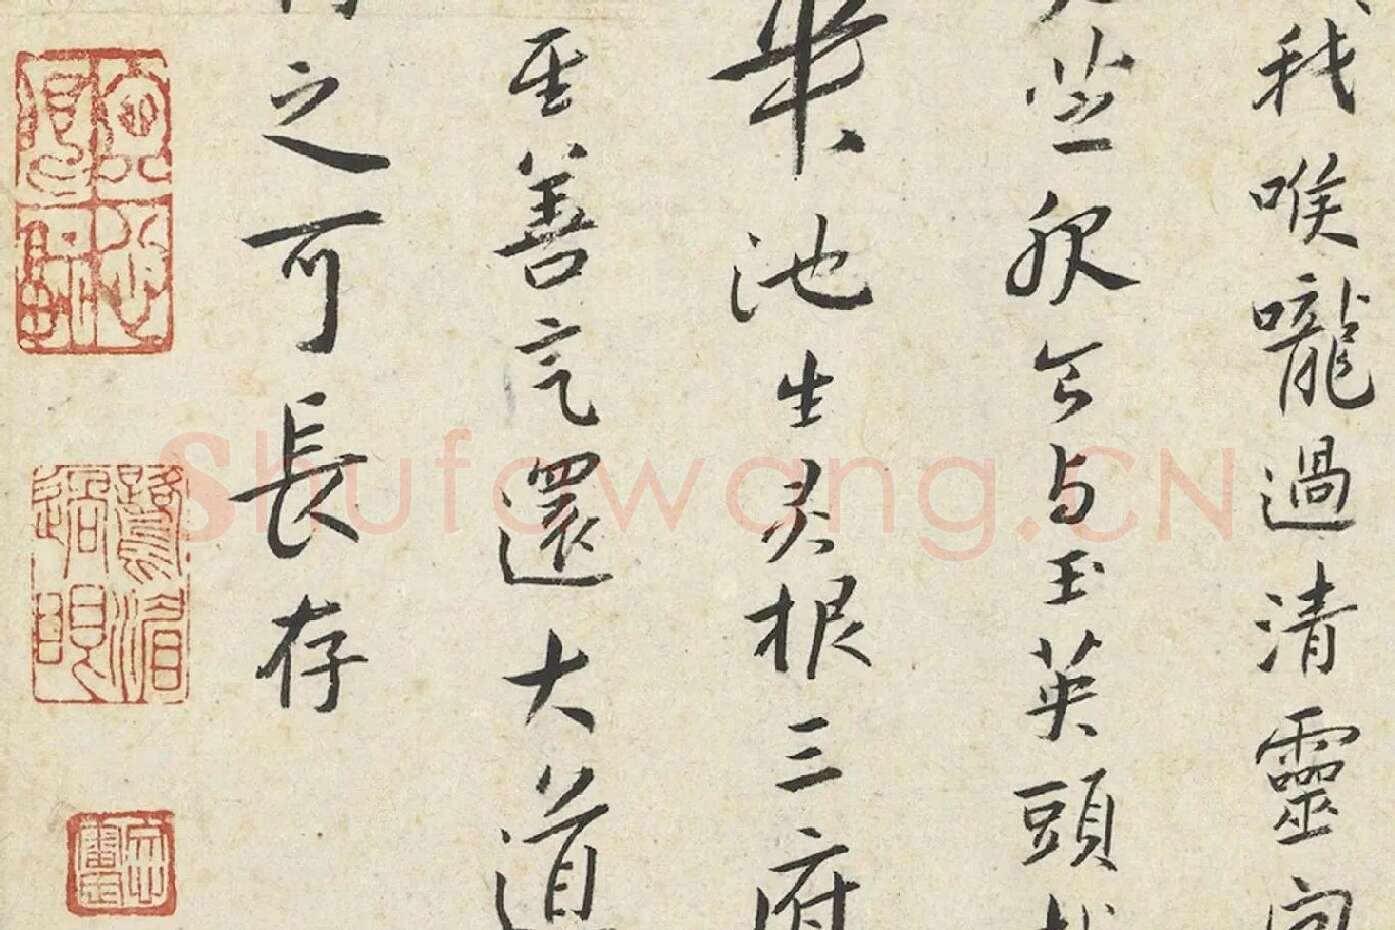 我喉嚨過清靈
坐服与玉英頭
華池生灵根三府
至善言還大道
之可長存
Shufawang.CN